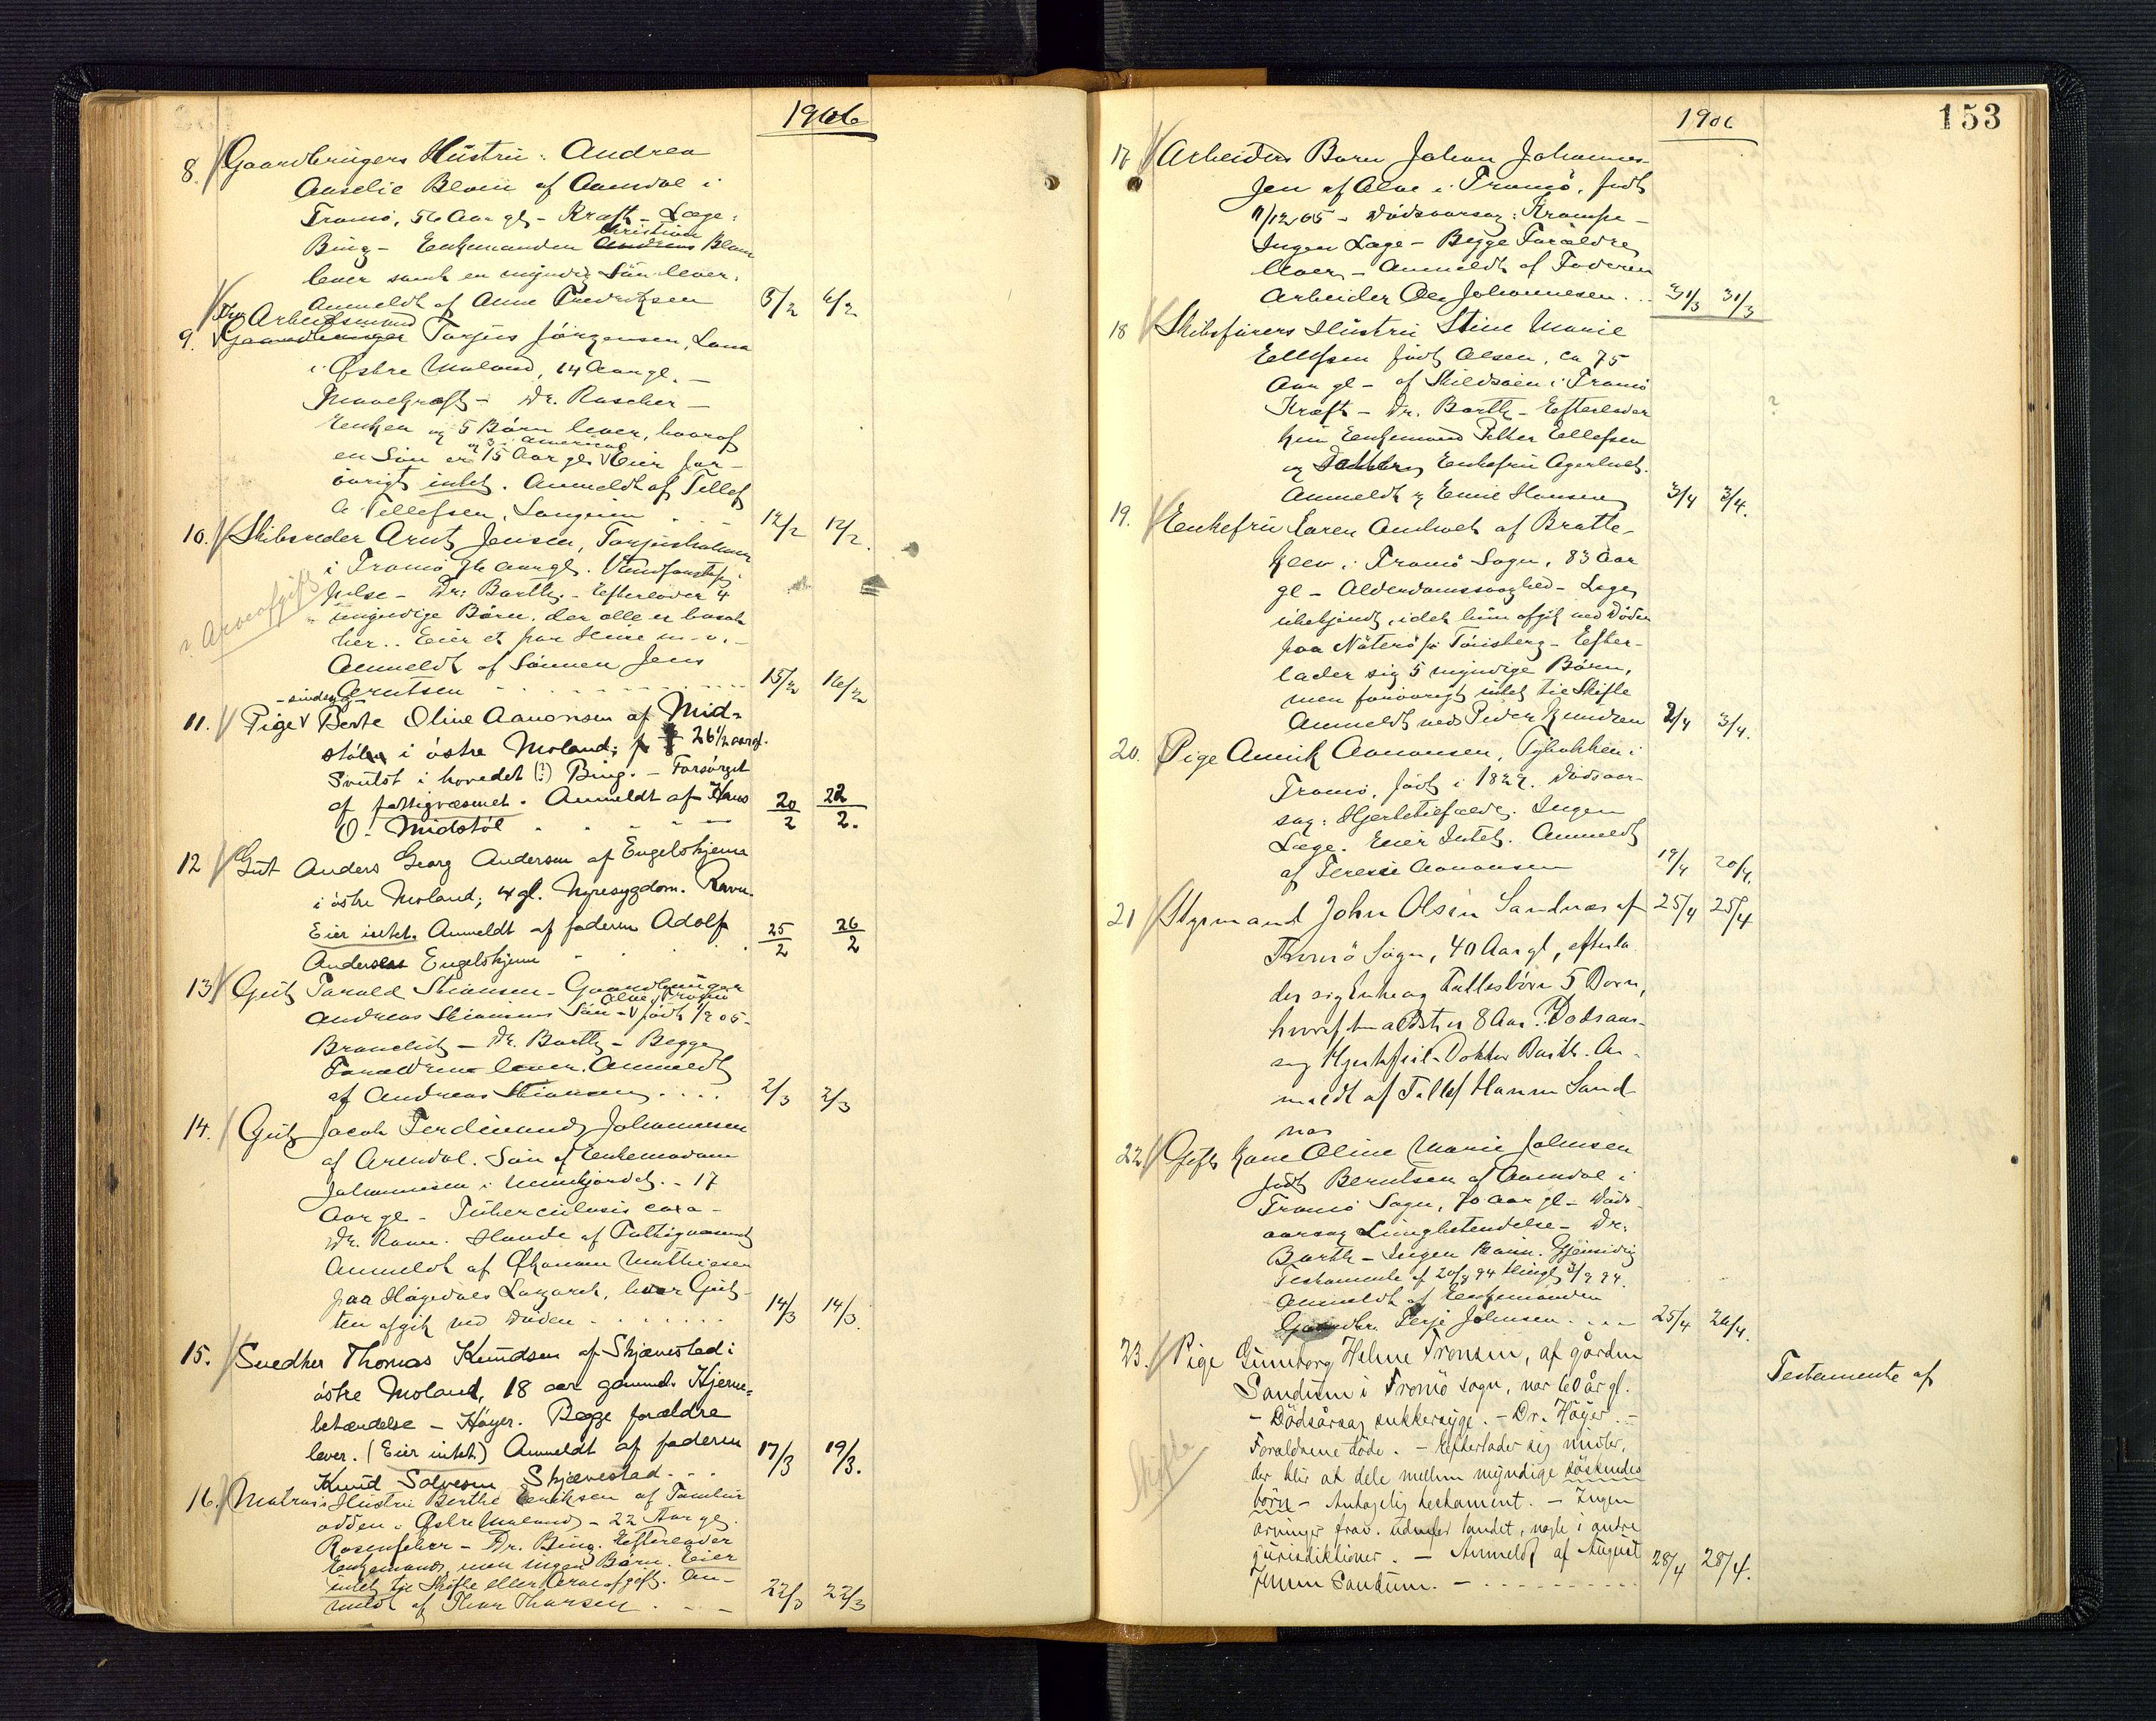 1906
8. Gaardbrugers Hustru: Andrea
Amelie Blom af Aamdal i
Tromö, 56 Aar gl - Kræft - Læge:
Bing - Enkemanden Andreas Christian Blom
lever samt en myndig Sön lever.
Anmeldt af Anne Fredriksen 5/2 6/2
9. Gaardbruger Arbeidsmand Torjus Jörgensen, Lona
i Östre Moland, 64 Aar gl. -
Mavekræft - Dr. Rascher -
Enken og 5 Börn lever, hvoraf
en Sön er 15 Aar gl og 3 i America. Eier for-
övrigt intet. Anmeldt af Tellef
A. Tellefsen, Longum 12/2 12/2.
10. Skibsreder Arnt Jensen, Torjusholmen
i Tromö 76 Aar gl.
- Dr. Barth. - Efterlader 4
myndige Börn, der alle er bosat
her.. Eier et par Huse m. v. -
Anmeldt af Sönnen Jens
Arntsen 15/2 16/2
? Arveafgift
- sindssyg -
11. Pige Berte Oline Aanonsen af Mid-
stöl i östre Moland; 26 1/2 aar gl.
Svulst i hovedet (?) Bing. - Forsörget
af fattigvæsenet. Anmeldt af Hans
O. Midstöl 20/2 22/2.
12 Gut Anders Georg Andersen af Engelskjenn
i östre Moland; 4 gl. Nyresygdom. Ravn.
Eier intet. Anmeldt af faderen Adolf
Andersen Engelskjenn 25/2 26/2
13 Gut Harald Stiansen - Gaardbruger
Andreas Stiansens Sön - Alve i Tromö födt 1/2 05 -
Bronchit - Dr. Barth - Begge
Forældrene lever. Anmeldt
af Andreas Stiansen .... 2/3 2/3
14. Gut Jacob Ferdinand Johannesen
af Arendal. Sön af Enkemadam
Johannesen i Munkjordet. - 17
Aar gl - Tuberculosis coxa -
Dr. Ravn. Havde af Fattigvæsenet
Anmeldt af Økonom Mathiesen
paa Högedals Lazareth, hvor Gut-
ten afgik ved Döden ....... 14/3 14/3.
15. Snedker Thomas Knudsen af Skjævestad i
östre Moland, 18 aar gammel. Hjerne-
betændelse - Höyer. Begge forældre
lever. (Eier intet) Anmeldt af faderen
Knud Salvesen Skjævestad. .. 17/3 19/3.
16. Matros's Hustru Berthe Eeriksen af
odden i Östre Moland - 22 Aar gl.
Rosenfeber - Dr. Bing. Efterlader
Enkemand, men ingen Börn. Eier
intet til Skifte eller Arveafgift. An-
meldt af Thor Thorsen . - - 22/3 22/3
1906
153
17 Arbeiders Barn Johan Johannes-
sen af Alve i Tromö, födt
11/12 05 - Dödsaarsag: Krampe -
Ingen Læge - Begge Forældre
lever - Anmeldt af Faderen
Arbeider Ole Johannesen ... 31/3 31/3
18 Skibsförers Hustru Stine Marie
Ellefsen födt Olsen, ca 75
Aar gl - af Skilsöien i Tromö
Kræft - Dr. Barth - Efterlader
kun Enkemand Peter Ellefsen
og Datteren Enkefru Agerholt.
Anmeldt af Emil Hansen 3/4 3/4.
19. Enkefru Karen Andvot af Bratte-
klev i Tromö Sogn, 83 Aar
gl - Alderdomssvaghed - Læge
ubekjendt, idet hun afgik ved Döden
paa Nöterö pr Tönsberg - Efter-
lader sig 5 myndige Börn,
men forövrigt intet til Skifte
Anmeldt ved Peder Knudsen 2/4 3/4.
20. Pige Annik Aanonsen, Tybakken i
Tromö, födt i 1829. Dödsaar-
sag: Hjertetilfælde. Ingen
Læge. Eier Intet. Anmeldt
af Terese Aanonsen 19/4 20/4.
21 Styrmand John Olsen Sandnes af 25/4 25/4
Tromö Sogn, 40 Aar gl, efterla
der sig Enke og Fællesbörn 5 Börn,
hvoraf den ældste er 8 Aar. Dödsaar-
sag Hjertefeil. Doktor Barth. An-
meldt af Tellef Hansen Sand
nes
22. Gift Kone Oline Marie Johnsen
födt Berntsen af Aamdal i
Tromö Sogn, 70 Aar gl - Döds-
aarsag Lungebetændelse - Dr.
Barth - Ingen Börn. Gjensidig
Testamente af 20/8 94 thingl 3/9 94.
Anmeldt af Enkemanden
Gaardbr. Terje Johnsen .... 25/4 26/4.
23. Pige Gunnborg Helene Tronsen, af gården
Sandum i Tromö sogn, var 60 år gl.
- Dödsårsag sukkersyge. - Dr. Höyer. -
Forældrene döde. - Efterlader sig midler,
der blir at dele mellem myndige söskende-
börn - Antagelig testament. - Ingen
arvinger frav. udenfor landet, nogle i andre
jurisdiktioner. - Anmeldt af August
Jensen Sandum. - .......... 28/4 28/4.
Skifte
Testamente af